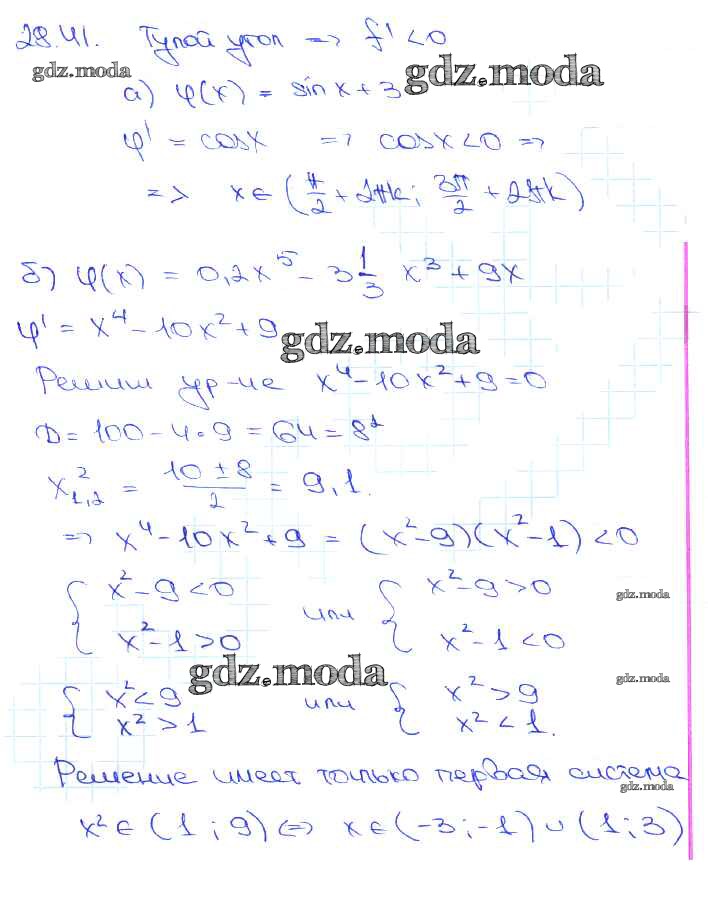 28.41. Тупой угол => f' < 0
gdz.moda
gdz.moda
а) φ(x) = sin x + 3
φ' = cos x => cos x < 0 =>
=> x ∈ (π/2 + 2πk; 3π/2 + 2πk)
б) φ(x) = 0,2x⁵ - 3 1/3 x³ + 9x
φ' = x⁴ - 10x² + 9
gdz.moda
Решим ур-ие x⁴ - 10x² + 9 = 0
D = 100 - 4·9 = 64 = 8²
x²₁,₂ = (10 ± 8)/2 = 9, 1.
=> x⁴ - 10x² + 9 = (x² - 9)(x² - 1) < 0
{ x² - 9 < 0 или { x² - 9 > 0
x² - 1 > 0 x² - 1 < 0
gdz.moda
gdz.moda
gdz.moda
{ x² < 9 или { x² > 9
x² > 1 x² < 1.
Решение имеет только первая система
gdz.moda
x² ∈ (1; 9) <=> x ∈ (-3; -1) ∪ (1; 3)